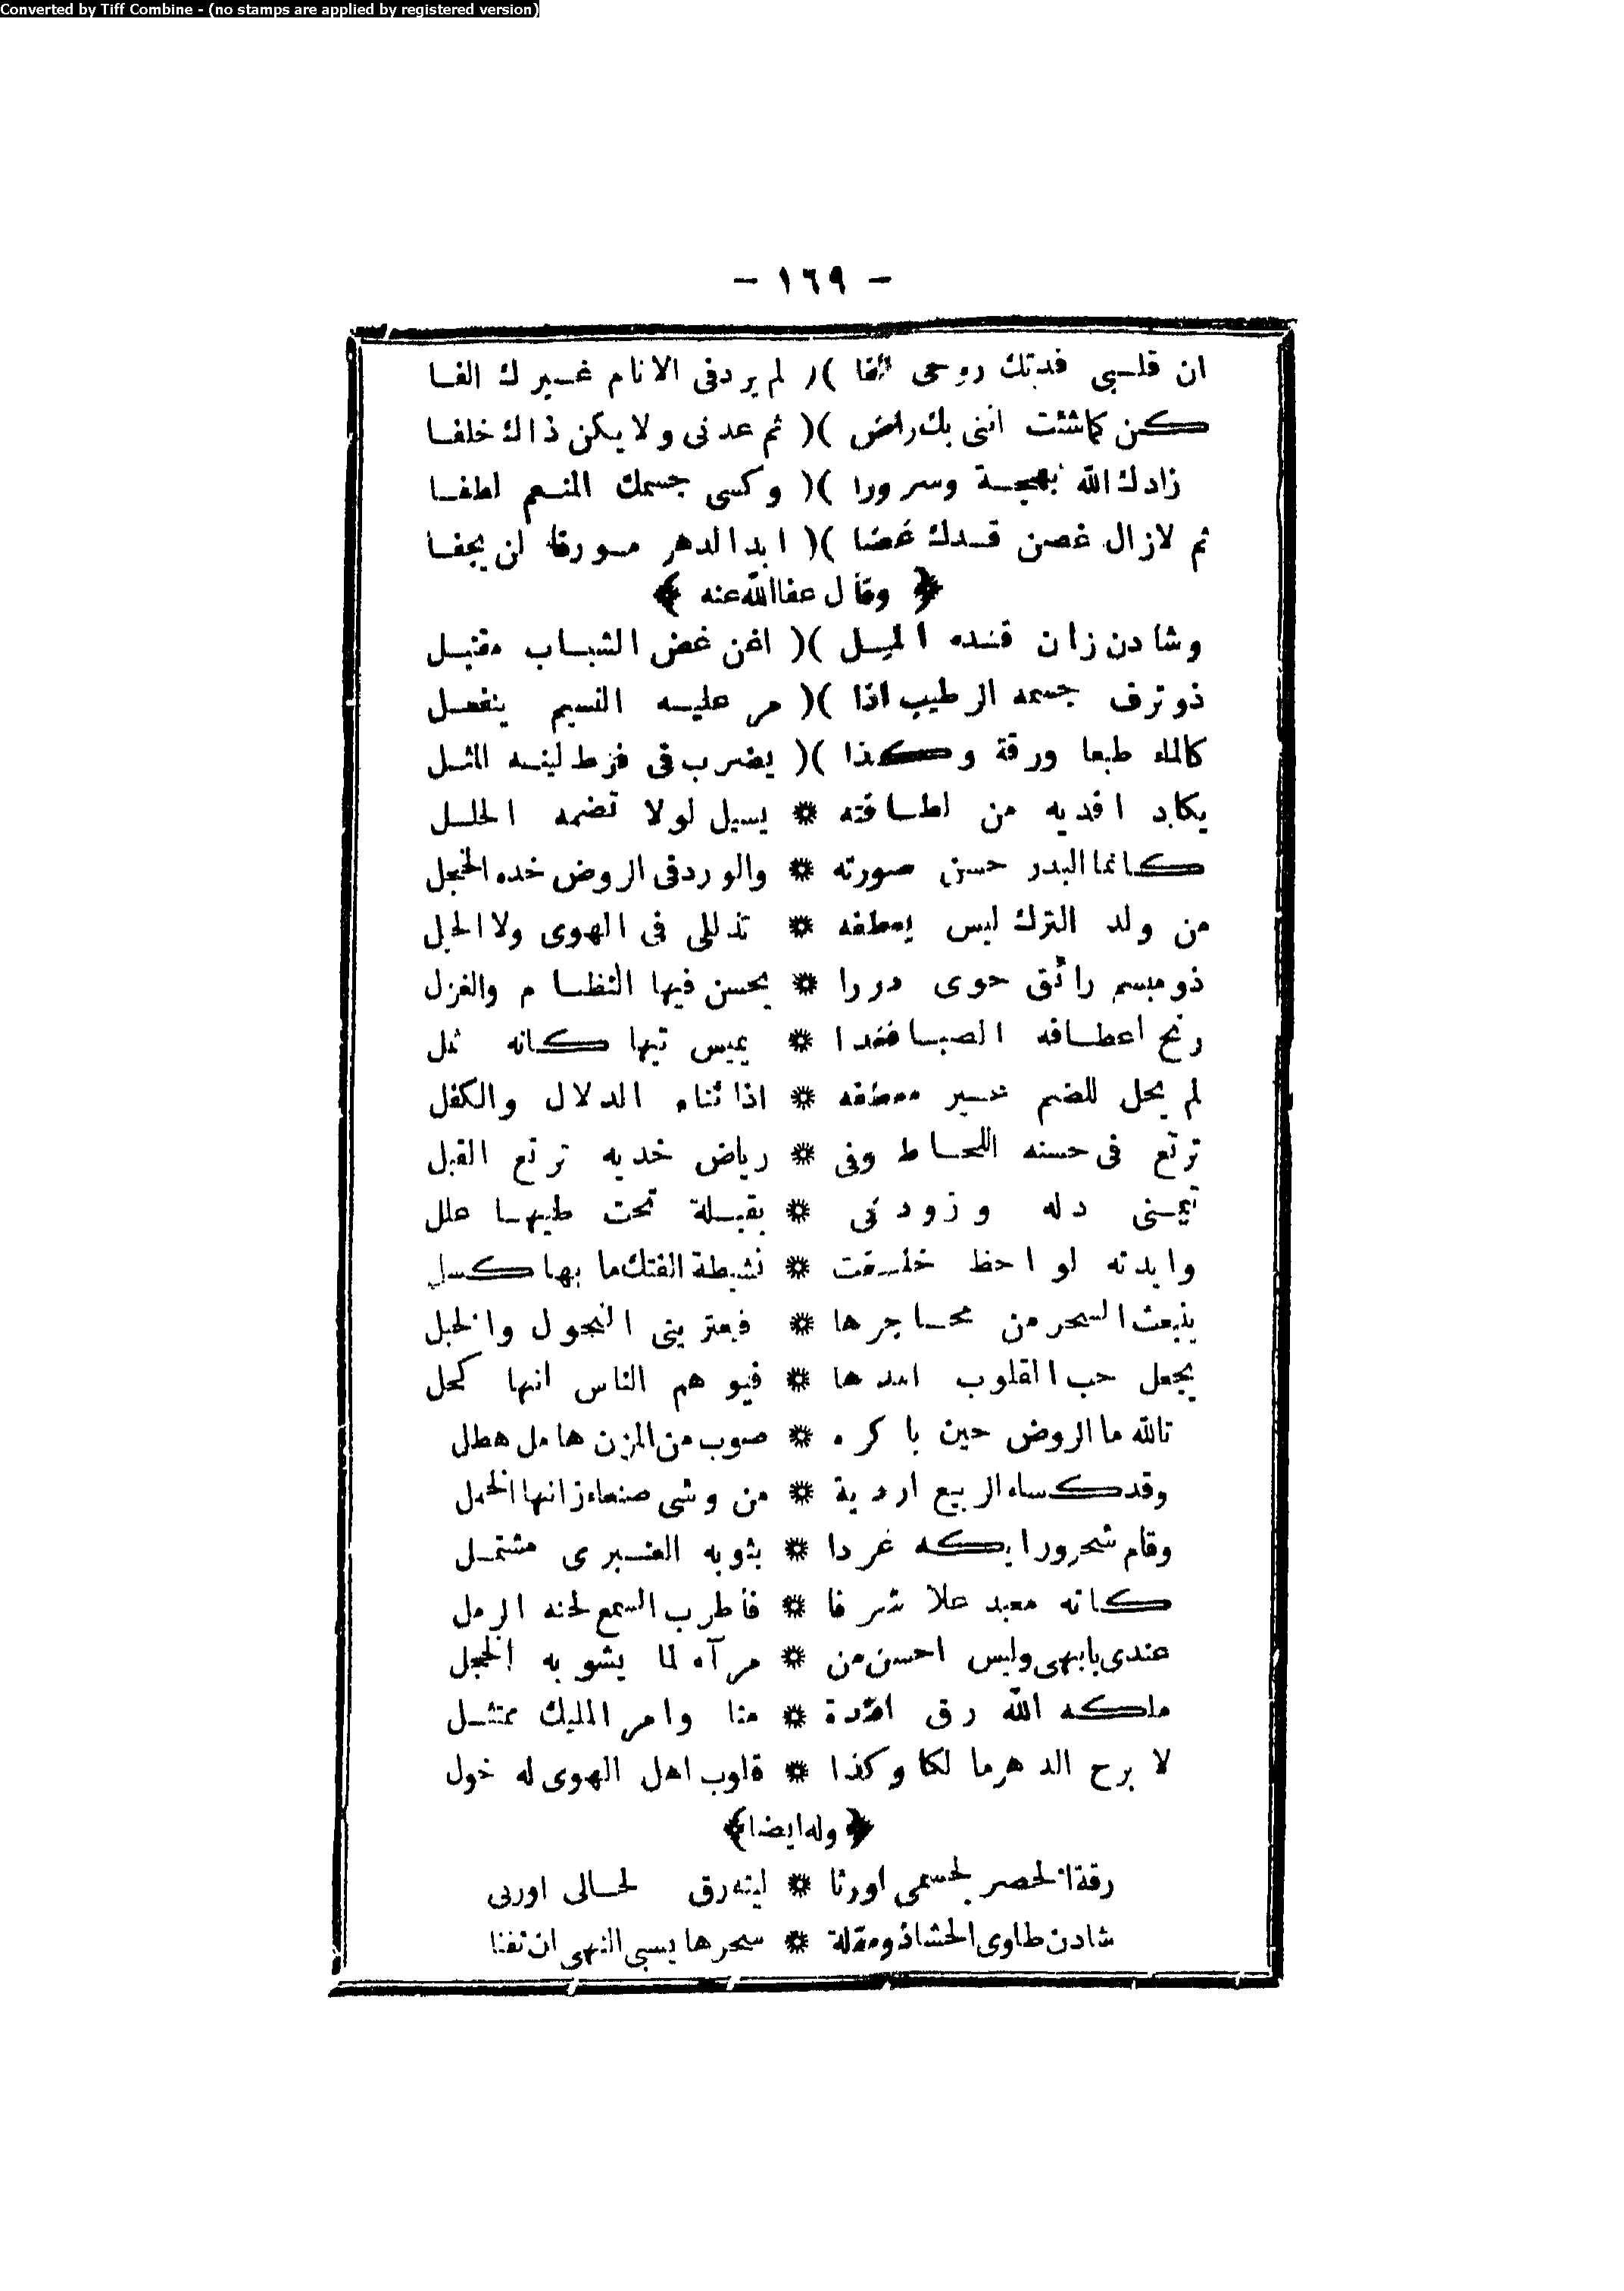 Converted by Tiff Combine - (no stamps are applied by registered version)
— ١٦٩ —
ان قلبي فدتك روحى الفا )( لم يرد فى الانام غيرك الفا
كن كماشئت اننى بك راض )( ثم عدنى ولا يكن ذاك خلفا
زادك الله بهجة وسرورا )( وكسى جسمك المنعم لطفا
ثم لازال غصن قدك غضا )( ابدالدهر مورقا لن يجفا
﴿ وقال عفاالله عنه ﴾
وشادن زان قده الميل )( اغن غض الشباب مقتبل
ذوترف جسمه الرطيب اذا )( مر عليه النسيم ينفصل
كالماء طبعا ورقة وكذا )( يضرب فى فرط لينه المثل
يكاد افديه من لطافته * يسيل لولا تضمه الحلل
كانما البدر حسن صورته * والورد فى الروض خده الخجل
من ولد الترك ليس يعطفه * تذللى فى الهوى ولا الحيل
ذومبسم رائق حوى دررا * يحسن فيها النظام والغزل
رنح اعطافه الصبا فغدا * يميس تيها كانه ثمل
لم يحل للضم غير معطفه * اذا ثناه الدلال والكفل
ترتع فى حسنه اللحاظ وفى * رياض خديه ترتع القبل
تيمنى دله وزودنى * بقبلة تحت طيها علل
وايدته لواحظ خلقت * نشيطة الفتك ما بها كسل
ينبعث السحر من محاجرها * فيعترينى النحول والخبل
يجعل حب القلوب اثمدها * فيوهم الناس انها كحل
تالله ما الروض حين باكره * صوب من المزن هامل هطل
وقد كساه الربيع اردية * من وشى صنعاء زانها الخمل
وقام شحرور ايكه غردا * بثوبه العنبرى مشتمل
كانه معبد علا شرفا * فأطرب السمع لحنه الرمل
عندى بابهى وليس احسن من * مرآه لما يشوبه الخجل
ملكه الله رق افئدة * منا وامر المليك ممتثل
لا برح الدهر مالكا وكذا * قلوب اهل الهوى له خول
﴿ وله ايضا ﴾
رقة الخصر لجسمى اورثا * ليته رق لحالى اورثى
شادن طاوى الحشا ذو مقلة * سحرها يسبي النهى ان نفثا